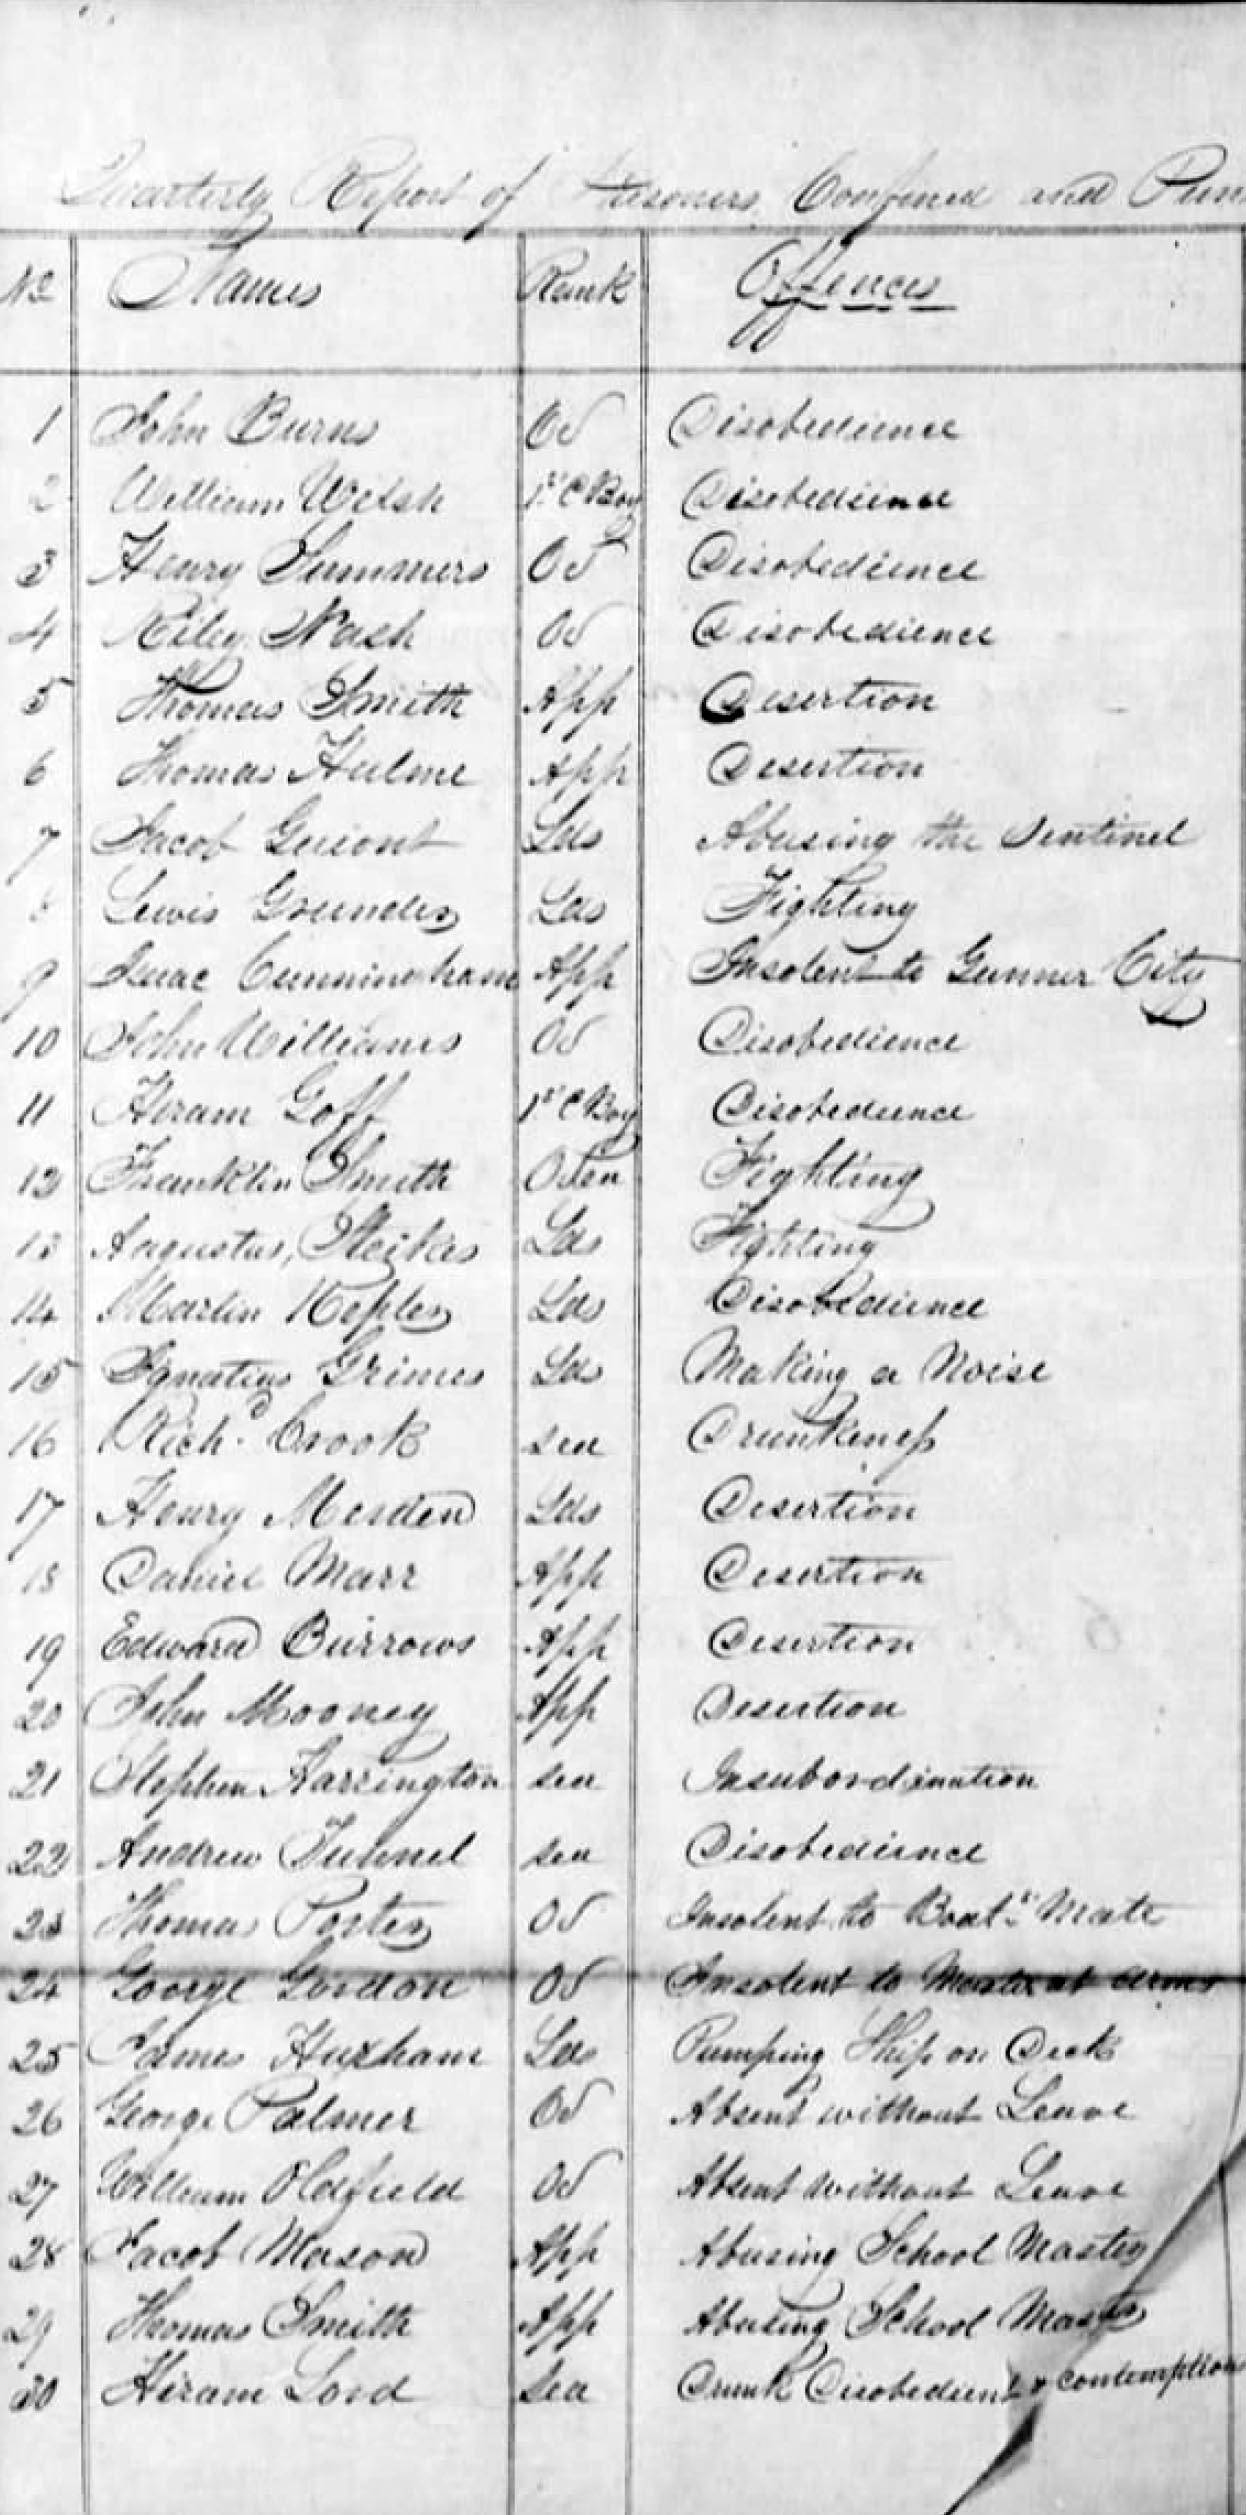 Quarterly Report of Prisoners Confined and Pun
No Names Rank Offences
1 John Burns OS Disobedience
2 William Welsh 1st C Boy Disobedience
3 Henry Summers OS Disobedience
4 Riley Nash OS Disobedience
5 Thomas Smith App Desertion
6 Thomas Hulme App Desertion
7 Jacob Lds Abusing the Sentinel
8 Lewis Lds Fighting
9 Isaac Cunningham App Insolent to Gunner City
10 John Williams OS Disobedience
11 Hiram Goff 1st C Boy Disobedience
12 Franklin Smith O Sea Fighting
13 Augustus Lds Fighting
14 Martin Kepler Lds Disobedience
15 Ignatius Grimes Lds Making a Noise
16 Richd. Crook Sea Drunkeness
17 Henry Lds Desertion
18 Daniel Marr App Desertion
19 Edward Burrows App Desertion
20 John Mooney App Desertion
21 Stephen Harrington Sea Insubordination
22 Andrew Sea Disobedience
23 Thomas Porter OS Insolent to Boats. Mate
24 George Gordon OS Insolent to Master at Arms
25 James Huxham Lds Pumping Ship on Deck
26 George Palmer OS Absent without Leave
27 William Oldfield OS Absent without Leave
28 Jacob Mason App Abusing School Master
29 Thomas Smith App Abusing School Master
30 Hiram Lord Sea Drunk Disobedient & contemptious